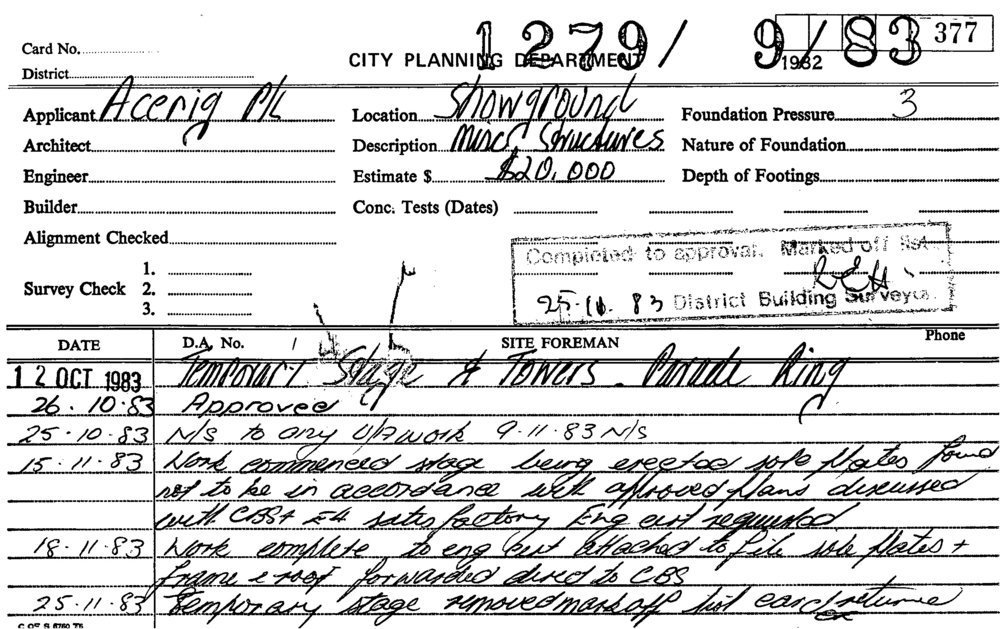 1279/ 9/83 377
Card No.
CITY PLANNING DEPARTMENT 1982
District
Applicant Acerig P/L Location Showground Foundation Pressure 3
Architect Description Misc. Structures Nature of Foundation
Engineer Estimate $ $20,000 Depth of Footings
Builder Conc. Tests (Dates)
Alignment Checked
Completed to approval. Marked off list
1.
Survey Check 2.
25.11.83 District Building Surveyor
3.
DATE D.A. No. / SITE FOREMAN Phone
12 OCT 1983 Temporary Stage & Towers - Parade Ring
26.10.83 Approved
25.10.83 N/S to any U/A work 9.11.83 N/S
15.11.83 Work commenced stage being erected sole plates found
not to be in accordance with approved plans discussed
with CBS + satisfactory Eng cert requested
18.11.83 Work complete to eng cert attached to file sole plates +
frame & roof forwarded direct to CBS
25.11.83 Temporary stage removed mark off list card returne